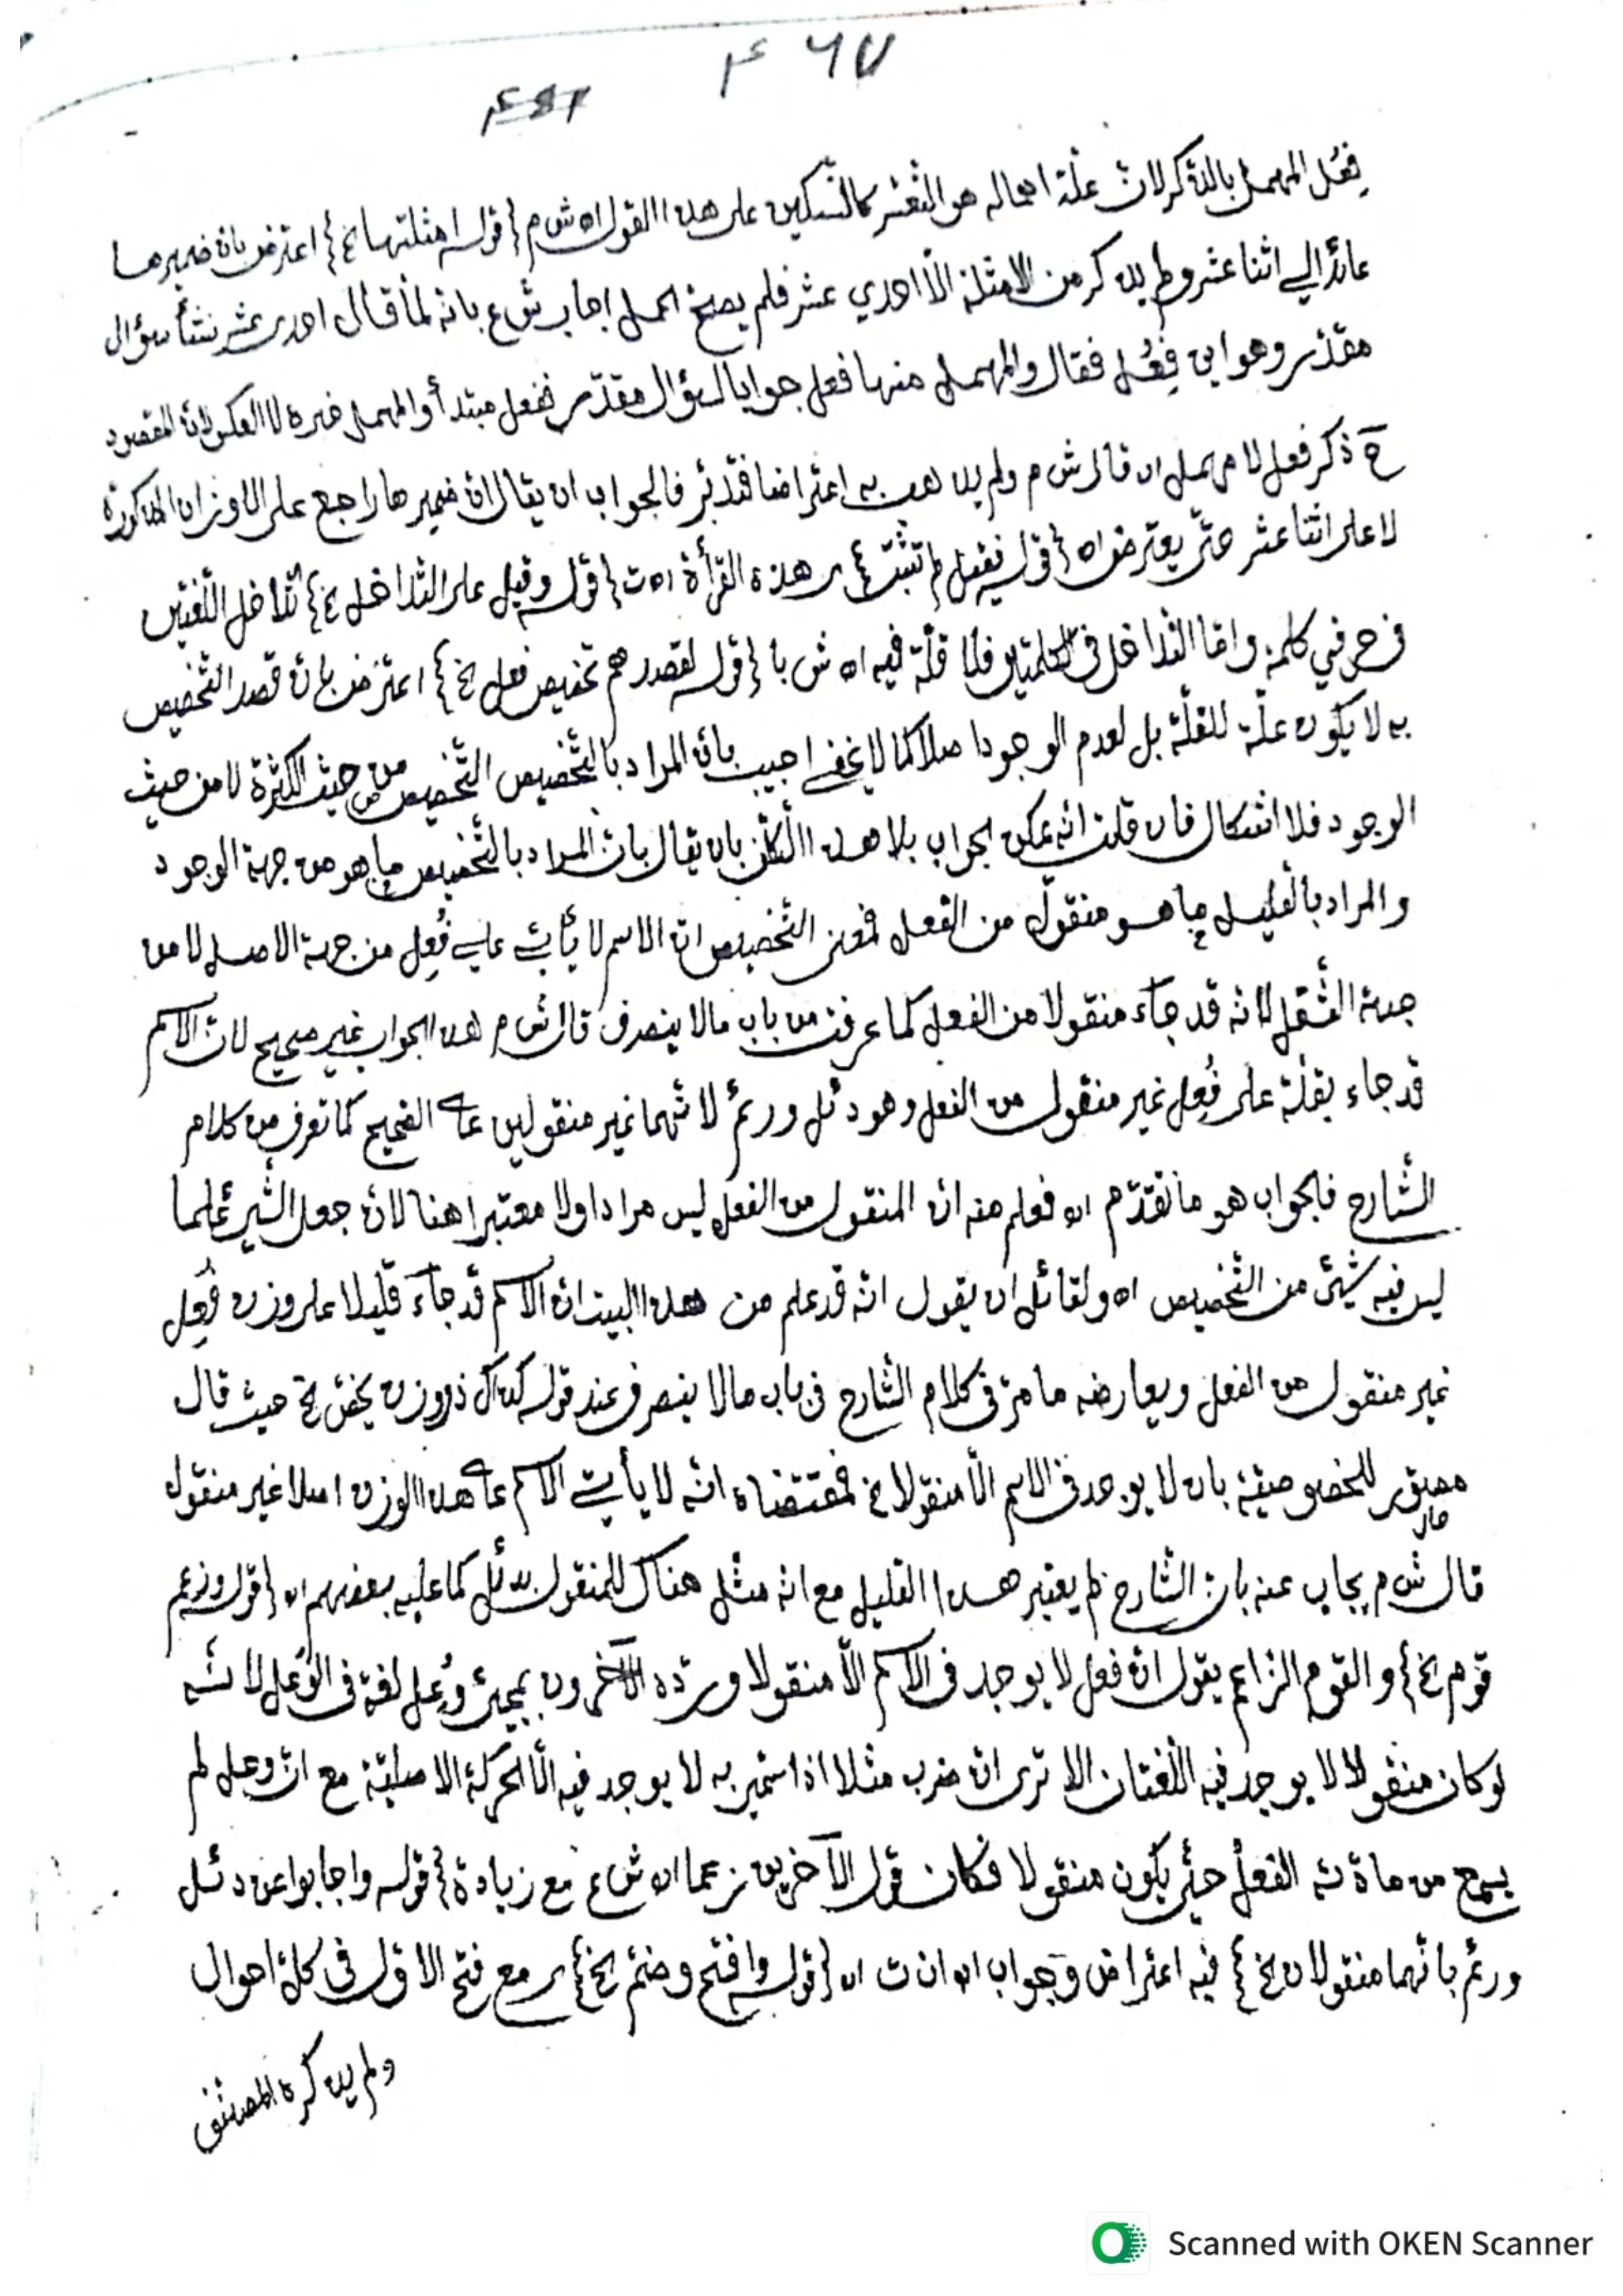 ۴۶۷
فِعُل المهمل بالذكر لان علة اهماله هو الثقل كالتسكين على هذا القول اه ش م {قوله امثلتها الخ} اعترض بان ضميرها
عائد الي اثنا عشر ولم يذكر من الامثلة الا احدي عشر فلم يصح الحمل اجاب ش ع بانه لما قال احدى عشر نشأ سؤال
مقدر وهو اين فِعُل فقال والمهمل منها فعل جوابا لسؤال مقدّر ففعل مبتدأ والمهمل خبره لا العكس لان المقصود
ح ذكر فعل لا مهمل اه قال ش م ولم يذهب به اعتراضا فتدبر فالجواب ان يقال ان ضميرها راجع على الاوزان المذكورة
لا على اثنا عشر حتى يعترض اه {قوله فقيل لم تثبت} هذه القرأة اه ت {قوله وقيل على التداخل الخ} تداخل اللغتين
في كلمة واما التداخل في الكلمتين فلا قلّة فيه اه ش با {قوله لقصدهم تخصيص فعل الخ} اعترض بان قصد التخصيص
به لا يكون علّة للقلّة بل لعدم الوجود اصلا كما لا يخفى اجيب بان المراد بالتخصيص التخصيص من حيث الكثرة لا من حيث
الوجود فلا اشكال فان قلت انه يمكن الجواب بلا هذا بان يقال بان المراد بالتخصيص ما هو من جهة الوجود
والمراد بالقليل ما هو منقول من الفعل فمعنى التخصيص ان الاسم لا يأتي علي فُعِل من جهة الاصل لا من
جهة النقل لانه قد جآء منقولا من الفعل كما عرفت من باب مالا ينصرف قال ش م هذا الجواب غير صحيح لان الاسم
قد جاء بقلّة على فُعِل غير منقول من الفعل وهو دئل ورئم لانهما غير منقولين على الصحيح كما تعرف من كلام
الشارح فالجواب هو ما تقدّم اه فعلم منه ان المنقول من الفعل ليس مرادا ولا معتبرا هنا لان جعل الشئ علما
ليس فيه شيئ من التخصيص اه ولقائل ان يقول انه قد علم من هذا البيت ان الاسم قد جآء قليلا على وزن فُعِل
غير منقول من الفعل ويعارضه ما مرّ في كلام الشارح في باب مالا ينصرف عند قوله كذاك ذو وزن يخصّ الخ حيث قال
للخصوصيّة بان لا يوجد في الاسم الا منقولا الخ فمقتضاه انه لا يأتي الاسم على هذا الوزن اصلا غير منقول
قال ش م يجاب عنه بان الشارح لم يعتبر هذا القليل مع انه مثل هناك للمنقول بدئل كما عليه بعضهم اه {قوله وزعم
قوم الخ} والقوم الزاعم يقول ان فعل لا يوجد في الاسم الا منقولا وردّه الآخرون بمجيئ وُعِل لغة في الوَعل لانه
لو كان منقولا لا يوجد فيه اللغتان الا ترى ان ضرب مثلا اذا سمّي به لا يوجد فيه الا الحركة الاصليّة مع ان وعل لم
يسمع من مادّته الفعل حتّى يكون منقولا فكان قول الآخرين زعما اه ش ع مع زيادة {قوله واجابوا عن دئل
ورئم بانهما منقولان الخ} فيه اعتراض وجواب اه ان ت اه {قوله وافتح وضم الخ} مع فتح الاوّل في كلّ احوال
ولم يذكره المصنّف
Scanned with OKEN Scanner